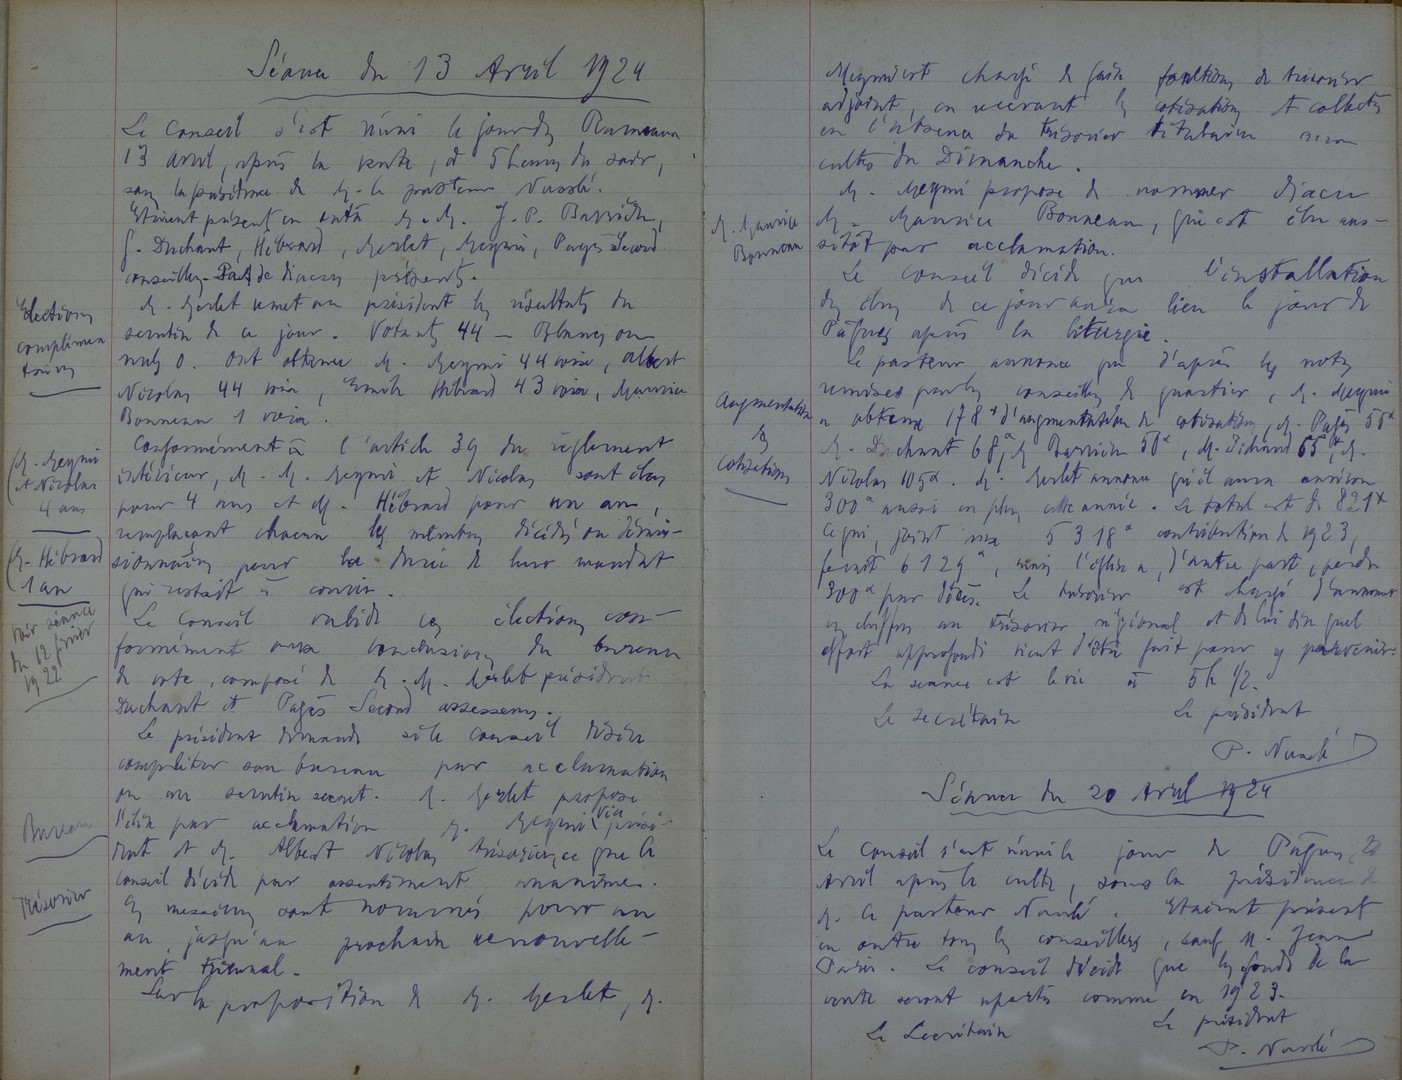 Séance du 13 Avril 1924
Le Conseil s'est réuni le jour des Rameaux
13 avril, après la vente, à 5 heures du soir,
sous la présidence de M. le pasteur Nardé.
Etaient présents en outre M. M. J. P. Barrière,
Duchant, Hébrard, Merlet, Meyniı, Pagès Second
conseillers. Pas de diacres présents.
Elections
complémen
taires
M. Merlet remet au président les résultats du
scrutin de ce jour. Votants 44 — Blancs ou
nuls 0. Ont obtenu M. Meyni 44 voix, Albert
Nicolas 44 voix, Emile Hébrard 43 voix, Maurice
Bonneau 1 voix.
M. Meyni
et Nicolas
4 ans
Conformément à l'article 39 du règlement
intérieur, M. M. Meyni et Nicolas sont élus
pour 4 ans et M. Hébrard pour un an,
remplaçant chacun les membres décédés ou démis-
sionnaires pour la durée de leur mandat
qui restait à courir.
M. Hébrard
1 an
voir séance
du 12 février
1922
Le Conseil valide ces élections con-
formément aux conclusions du bureau
de vote, composé de M. M. Merlet président
Duchant et Pagès Second assesseurs.
Le président demande si le conseil désire
compléter son bureau par acclamation
ou au scrutin secret. M. Merlet propose
Bureau
d'élire par acclamation M. Meyni vice prési-
dent et M. Albert Nicolas trésorier, ce que le
conseil décide par assentiment unanime.
Trésorier
Ces messieurs sont nommés pour un
an, jusqu'au prochain renouvelle-
ment triennal.
Sur la proposition de M. Merlet, M.
Meyni est chargé de faire fonctions de trésorier
adjoint, en recevant les cotisations et collectes
en l'absence du trésorier titulaire aux
cultes du Dimanche.
M. Maurice
Bonneau
M. Meyni propose de nommer diacre
M. Maurice Bonneau, qui est élu aus-
sitôt par acclamation.
Le conseil décide que l'installation
des élus de ce jour aura lieu le jour de
Pâques après la liturgie.
Augmentation
des
cotisations
Le pasteur annonce que d'après les notes
remises par les conseillers de quartier, M. Meyni
a obtenu 178 f d'augmentation de cotisations, M. Pagès 55 f
M. Duchant 68 f, M. Barrière 50 f, M. 65 f, M.
Nicolas 105 f. M. Merlet annonce qu'il aura environ
300 f aussi en plus cette année. Le total est de 821 f
ce qui, joint aux 5318 f contribution de 1923,
ferait 6129 f, mais l'église a, d'autre part, perdu
300 f par décès. Le trésorier est chargé d'annoncer
ces chiffres au trésorier régional et de lui dire quel
effort approfondi vient d'être fait pour y parvenir.
La séance est levée à 5h 1/2.
Le secrétaire Le président
P. Nardé
Séance du 20 Avril 1924
Le Conseil s'est réuni le jour de Pâques, 20
avril après le culte, sous la présidence de
M. le pasteur Nardé. Etaient présents
en outre tous les conseillers, sauf M. Jean
Le conseil décide que les fonds de la
vente seront répartis comme en 1923.
Le Secrétaire Le président
P. Nardé